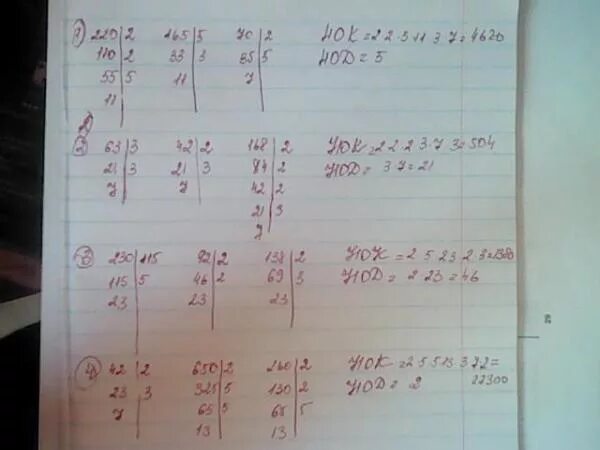 1) 220 | 2 165 | 5 70 | 2 НОК = 2 2 5 11 3 7 = 4620
110 | 2 33 | 3 35 | 5 НОД = 5
55 | 5 11 7
11
2) 63 | 3 42 | 2 168 | 2 НОК = 2 2 2 3 7 3 = 504
21 | 3 21 | 3 84 | 2 НОД = 3 7 = 21
7 7 42 | 2
21 | 3
7
3) 230 | 115 92 | 2 138 | 2 НОК = 2 5 23 2 3 = 1380
115 | 5 46 | 2 69 | 3 НОД = 2 23 = 46
23 23 23
4) 42 | 2 650 | 2 260 | 2 НОК = 2 5 5 13 3 7 2 =
23 | 3 325 | 5 130 | 2 НОД = 2 27300
7 65 | 5 65 | 5
13 13